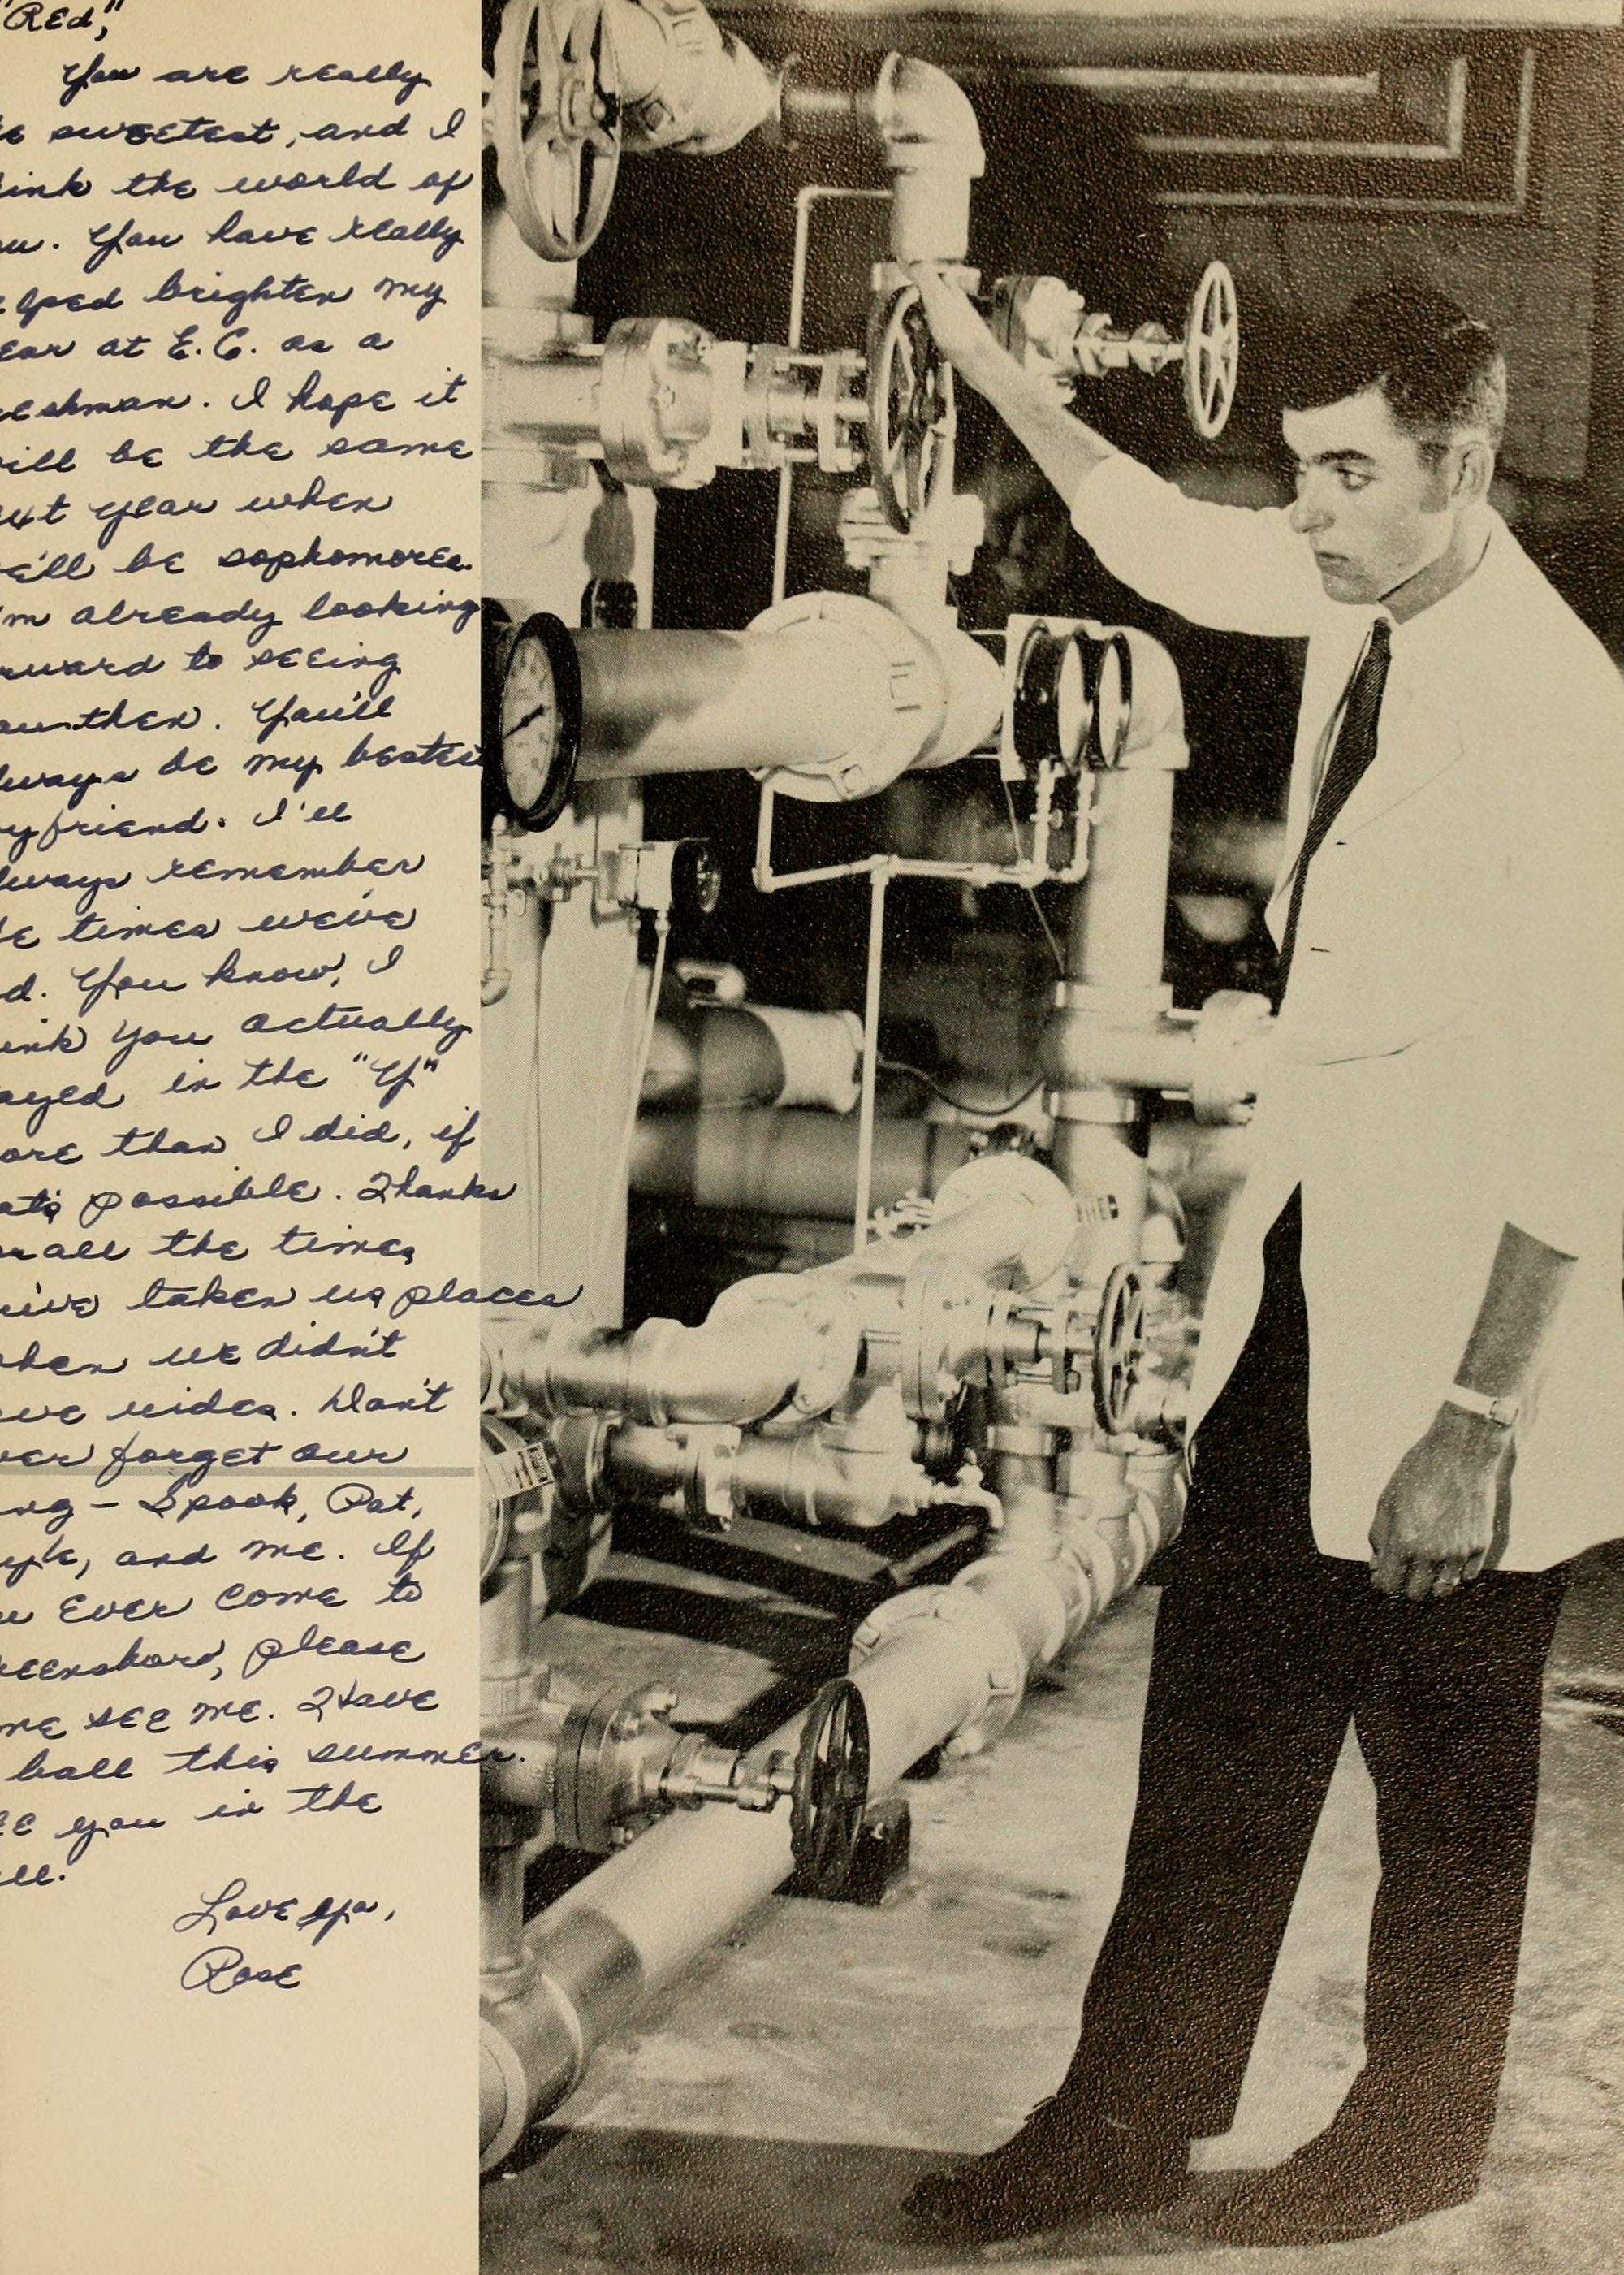 "REd,"
You are really
e sweetest, and I
ink the world of
u. You have really
lped brighten my
ear at E.C. as a
eshman. I hope it
ill be the same
ext year when
e'll be sophomores.
'm already looking
rward to seeing
ou then. You'll
lways be my bestest
oyfriend. I'll
lways remember
e times we've
d. You know, I
ink you actually
ayed in the "Y"
ore than I did, if
at's possible. Thanks
or all the times
u've taken us places
hen we didn't
ave rides. Don't
ver forget our
ng - Spook, Pat,
and me. If
u Ever come to
eensboro, please
me see me. Have
ball this summer.
ee you in the
ll.
Love ya,
Rose